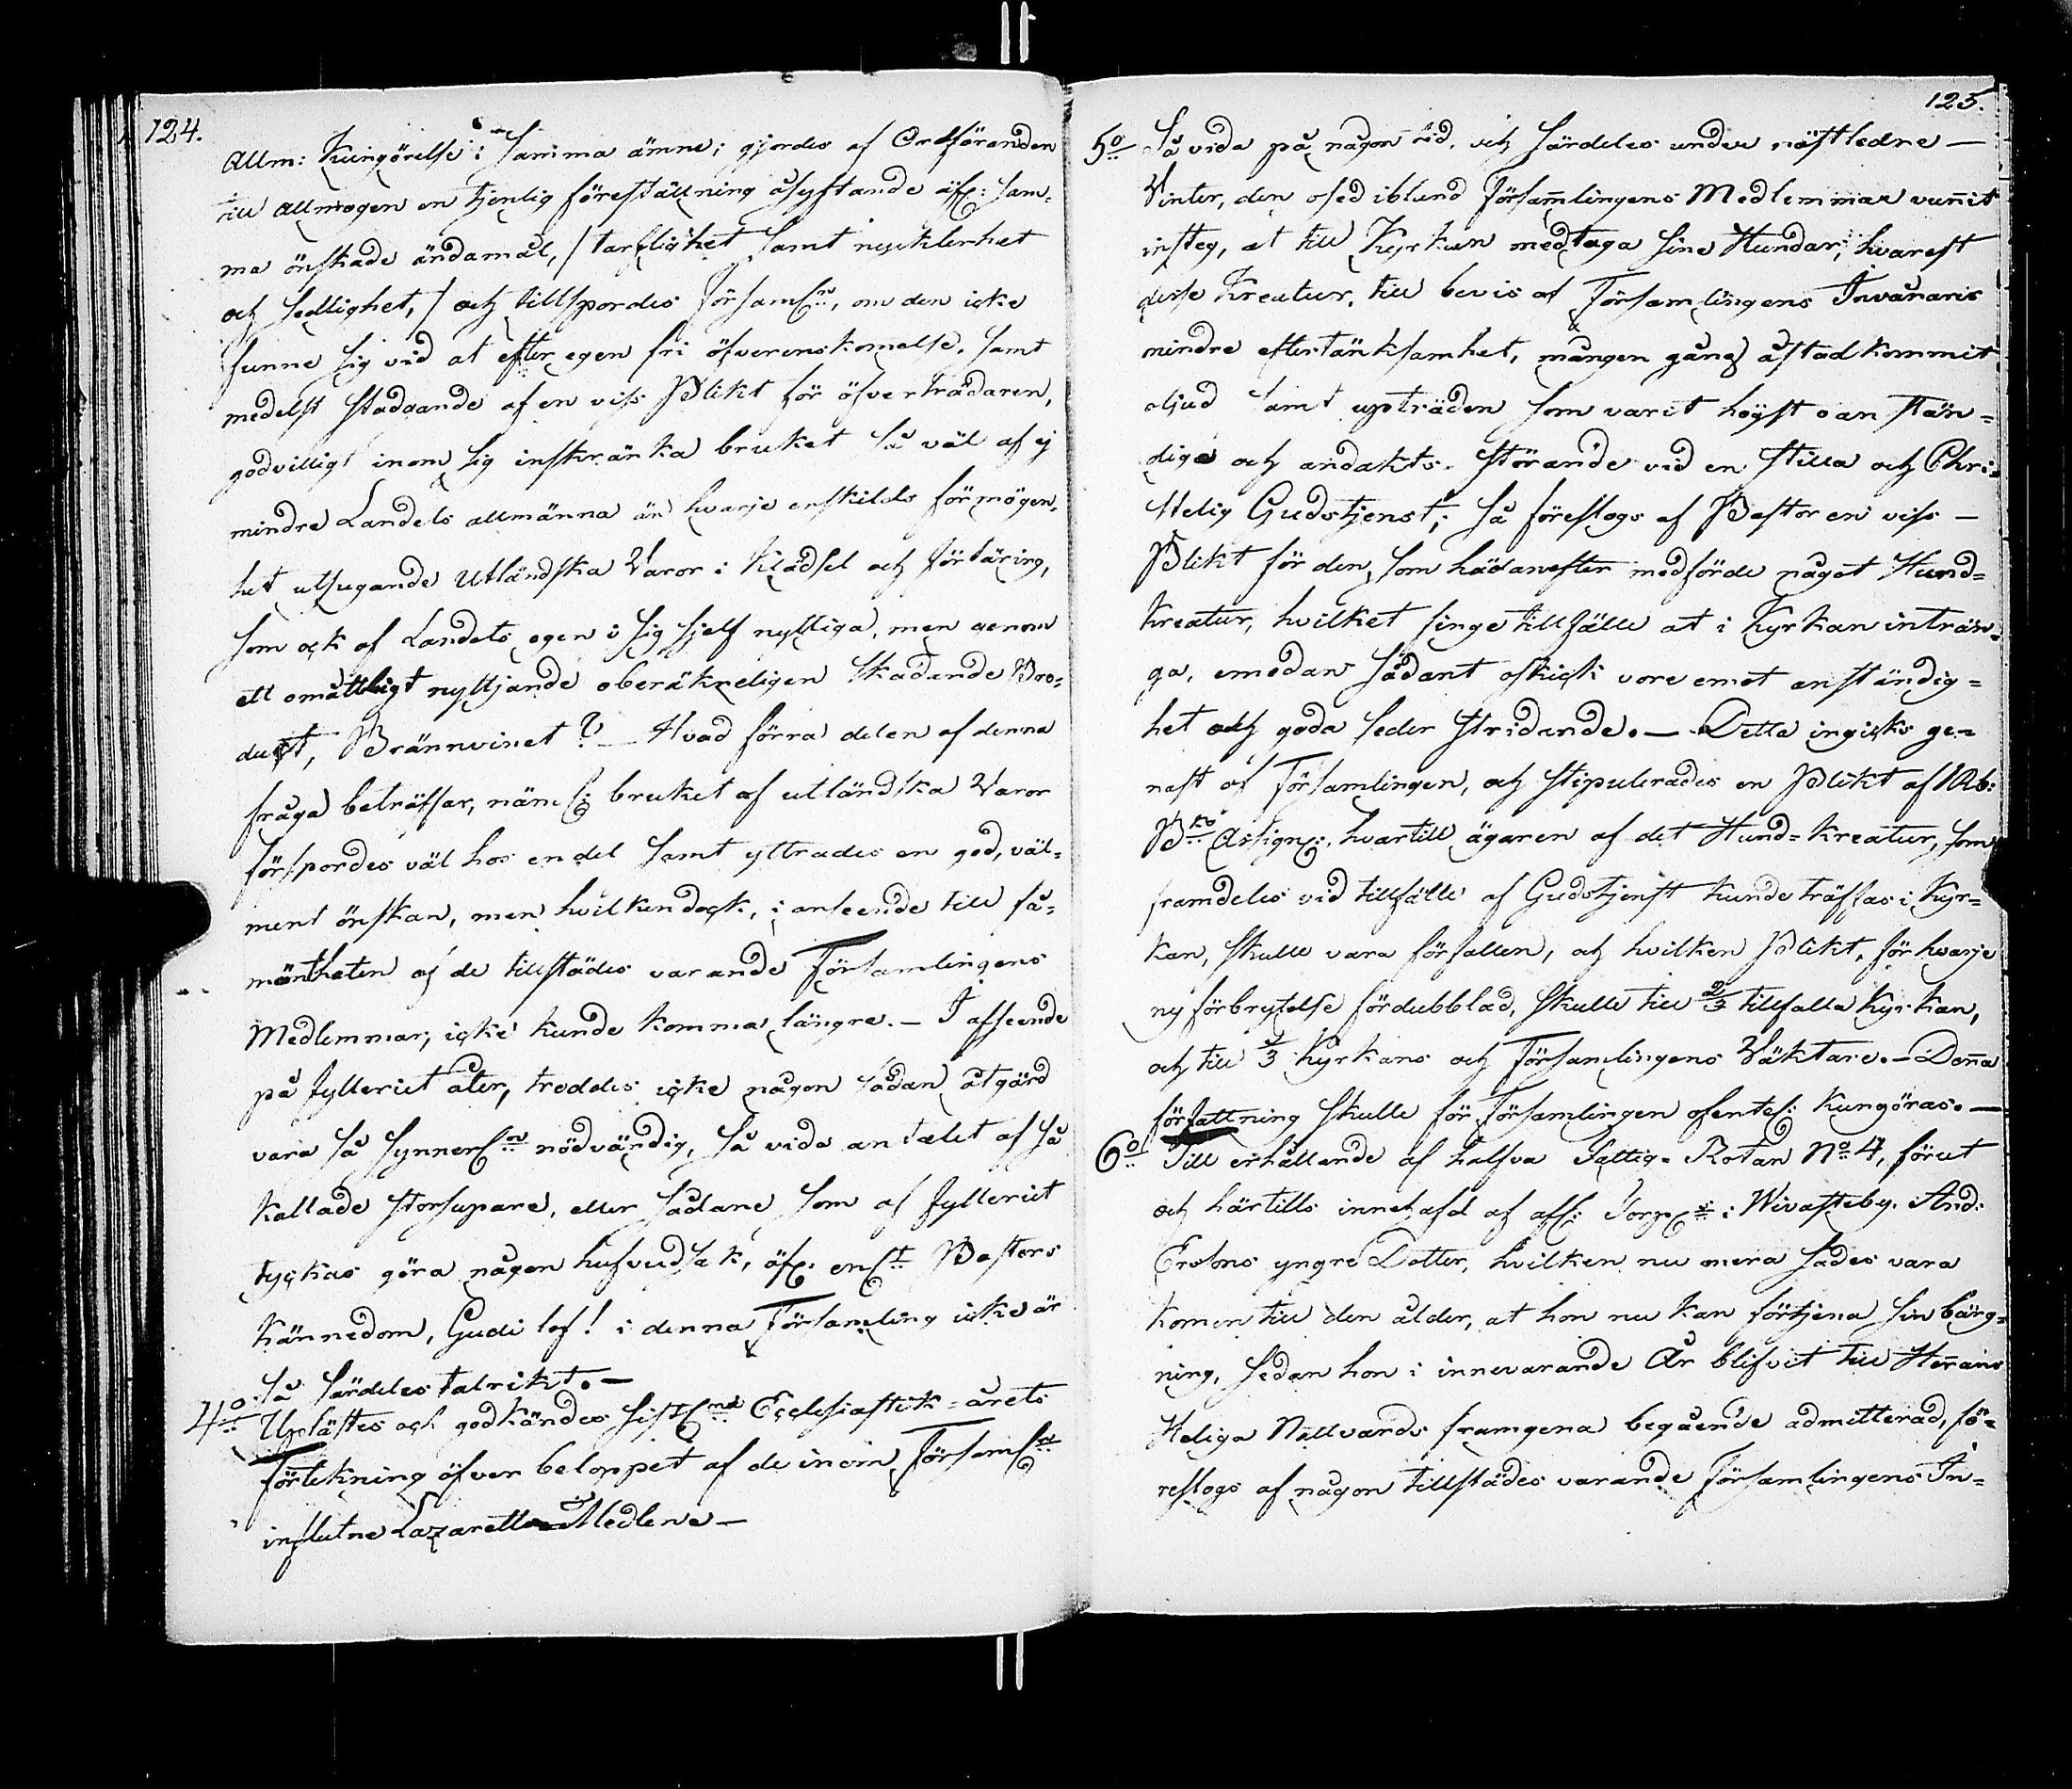 124.
Allm: Kungörelse i samma ämne; gjordes af Ordföranden
till Allmogen en tjenlig föreställning åsyftande äfv: sam-
ma önskade ändamål, / tarflighet samt nykterhet
och sedlighet, / och tillspordes Församl:n, om den icke
funne sig vid at efter egen fri öfverenskomelse, samt
medelst stadgande af en viss Plikt för öfverträdaren,
godvilligt inom sig inskränka bruket så väl af ej
mindre Landets allmänna än hvarje enskilds förmögen-
het utsugande Utländska Varor i Klädsel och förtäring,
som ock af Landets egen i sig sjelf nyttiga, men genom
ett omåttligt nyttjande oberäkneligen skadande Pro-
duct, Brännvinet? – Hvad förra delen af denna
fråga beträffar, näml: bruket af utländska Varor
förspordes väl hos en del samt yttrades en god, väl-
ment önskan, men hvilken dock, i anseende till få-
mäntheten af de tillstädes varande Församlingens
Medlemmar, icke kunde komma längre. – I afseende
på fylleriet åter, troddes icke någon sådan åtgärd
vara så synnerl:n nödvändig, så vida antalet af så
kallade storsupare, eller sådane som af fylleriet
tyckas göra någon hufvudsak, äfv: enl:t Pastors
kännedom, Gudi lof! i denna Församling icke är
så särdeles talrikt. –
4:o Uplästes och godkändes sistl:ne Ecclesiastik-årets
Förtekning öfver beloppet af de inom Församl:n
influtne Lazaretts Medlene –
125.
5:o Så vida på någon tid, och särdeles under nästledne –
Vinter, den osed ibland Församlingens Medlemmar vunnit
insteg, at till Kyrkan medtaga sine Hundar; hvarest
desse Kreatur, till bevis af Församlingens Invånares
mindre eftertänksamhet, mången gång åstadkommit
oljud samt upträden som varit högst oanstän-
diga och andakts-störande vid en stilla och Chri-
stelig Gudstjenst; så föreslogs af Pastor en viss –
Plikt för den, som hädanefter medförde något Hund-
kreatur, hvilket finge tillfälle at i Kyrkan inträn-
ga, emedan sådant oskick vore emot anständig-
het och goda seder stridande. – Detta ingicks ge-
nast af Församlingen, och stipulerades en Plikt af 1 Rb:
B:ko Assign:, hvartill ägaren af det Hund-kreatur, som
framdeles vid tillfälle af Gudstjenst kunde träffas i Kyr-
kan, skulle vara förfallen, och hvilken Plikt, för hvarje
ny förbrytelse fördubblad, skulle till 2/3 tillfalla Kyrkan,
och till 1/3 Kyrkans och Församlingens Väktare. – Denna
författning skulle för Församlingen ofentel: kungöras. –
6:o Till erhållande af halfva Fattig-Rotan N:o 4, förut
och härtills innehafd af afl: Torp: i Wivasteby. And:
Ersons yngre Dotter, hvilken nu mera sades vara
komen till den ålder, at hon nu kan förtjena sin bärg-
ning, sedan hon i innevarande År blifvit till Herrans
Heliga Nattvards framgena begående admitterad, fö-
reslogs af någon tillstädes varande Församlingens In-